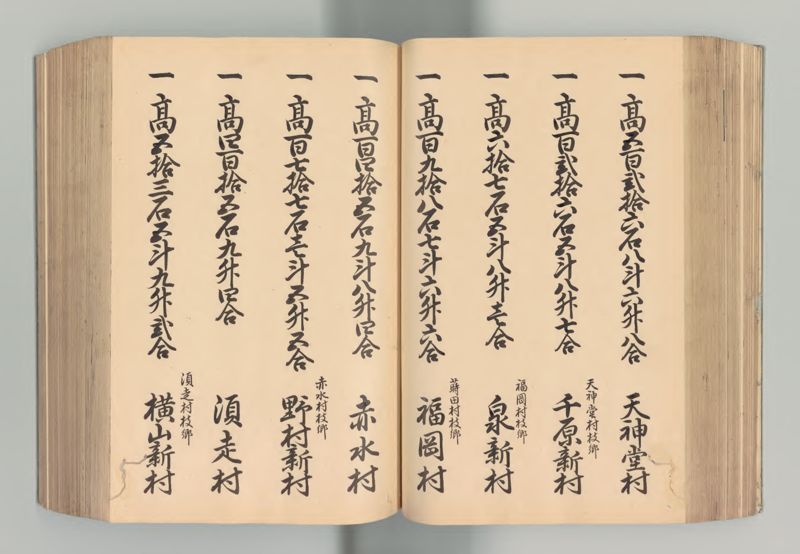 一 高五百弐拾六石八斗六升八合 天神堂村
一 高百弐拾六石五斗八升七合 天神堂村枝郷 千原新村
一 高六拾七石五斗八升壱合 福岡村枝郷 泉新村
一 高百九拾八石七斗六升六合 蒔田村枝郷 福岡村
一 高百四拾五石九斗八升四合 赤水村
一 高百七拾七石壱斗五升五合 赤水村枝郷 野村新村
一 高四百拾五石九升四合 須走村
一 高五拾三石五斗九升弐合 須走村枝郷 横山新村